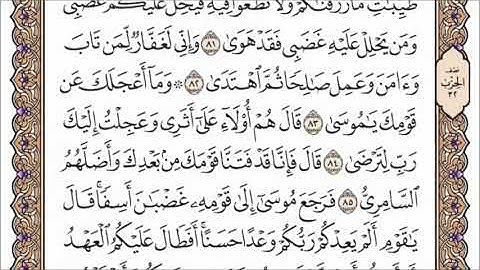 طَيِّبَٰتِ مَا رَزَقْنَٰكُمْ وَلَا تَطْغَوْا۟ فِيهِ فَيَحِلَّ عَلَيْكُمْ غَضَبِى
وَمَن يَحْلِلْ عَلَيْهِ غَضَبِى فَقَدْ هَوَىٰ ٨١ وَإِنِّى لَغَفَّارٌ لِّمَن تَابَ
وَءَامَنَ وَعَمِلَ صَٰلِحًا ثُمَّ ٱهْتَدَىٰ ٨٢ ۞ وَمَآ أَعْجَلَكَ عَن
قَوْمِكَ يَٰمُوسَىٰ ٨٣ قَالَ هُمْ أُو۟لَآءِ عَلَىٰٓ أَثَرِى وَعَجِلْتُ إِلَيْكَ
رَبِّ لِتَرْضَىٰ ٨٤ قَالَ فَإِنَّا قَدْ فَتَنَّا قَوْمَكَ مِنۢ بَعْدِكَ وَأَضَلَّهُمُ
ٱلسَّامِرِىُّ ٨٥ فَرَجَعَ مُوسَىٰٓ إِلَىٰ قَوْمِهِۦ غَضْبَٰنَ أَسِفًا ۚ قَالَ
يَٰقَوْمِ أَلَمْ يَعِدْكُمْ رَبُّكُمْ وَعْدًا حَسَنًا ۚ أَفَطَالَ عَلَيْكُمُ ٱلْعَهْدُ
نصف
الحزب
٣٢